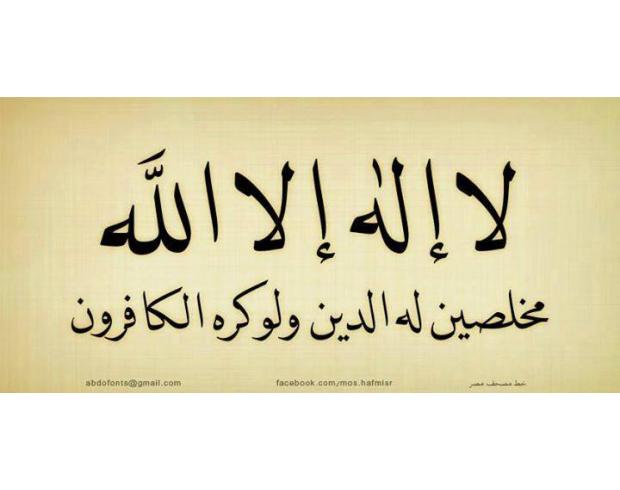 لا إله إلا الله
مخلصين له الدين ولوكره الكافرون
abdofonts@gmail.com facebook.com/mos.hafmisr خط مصحف مصر